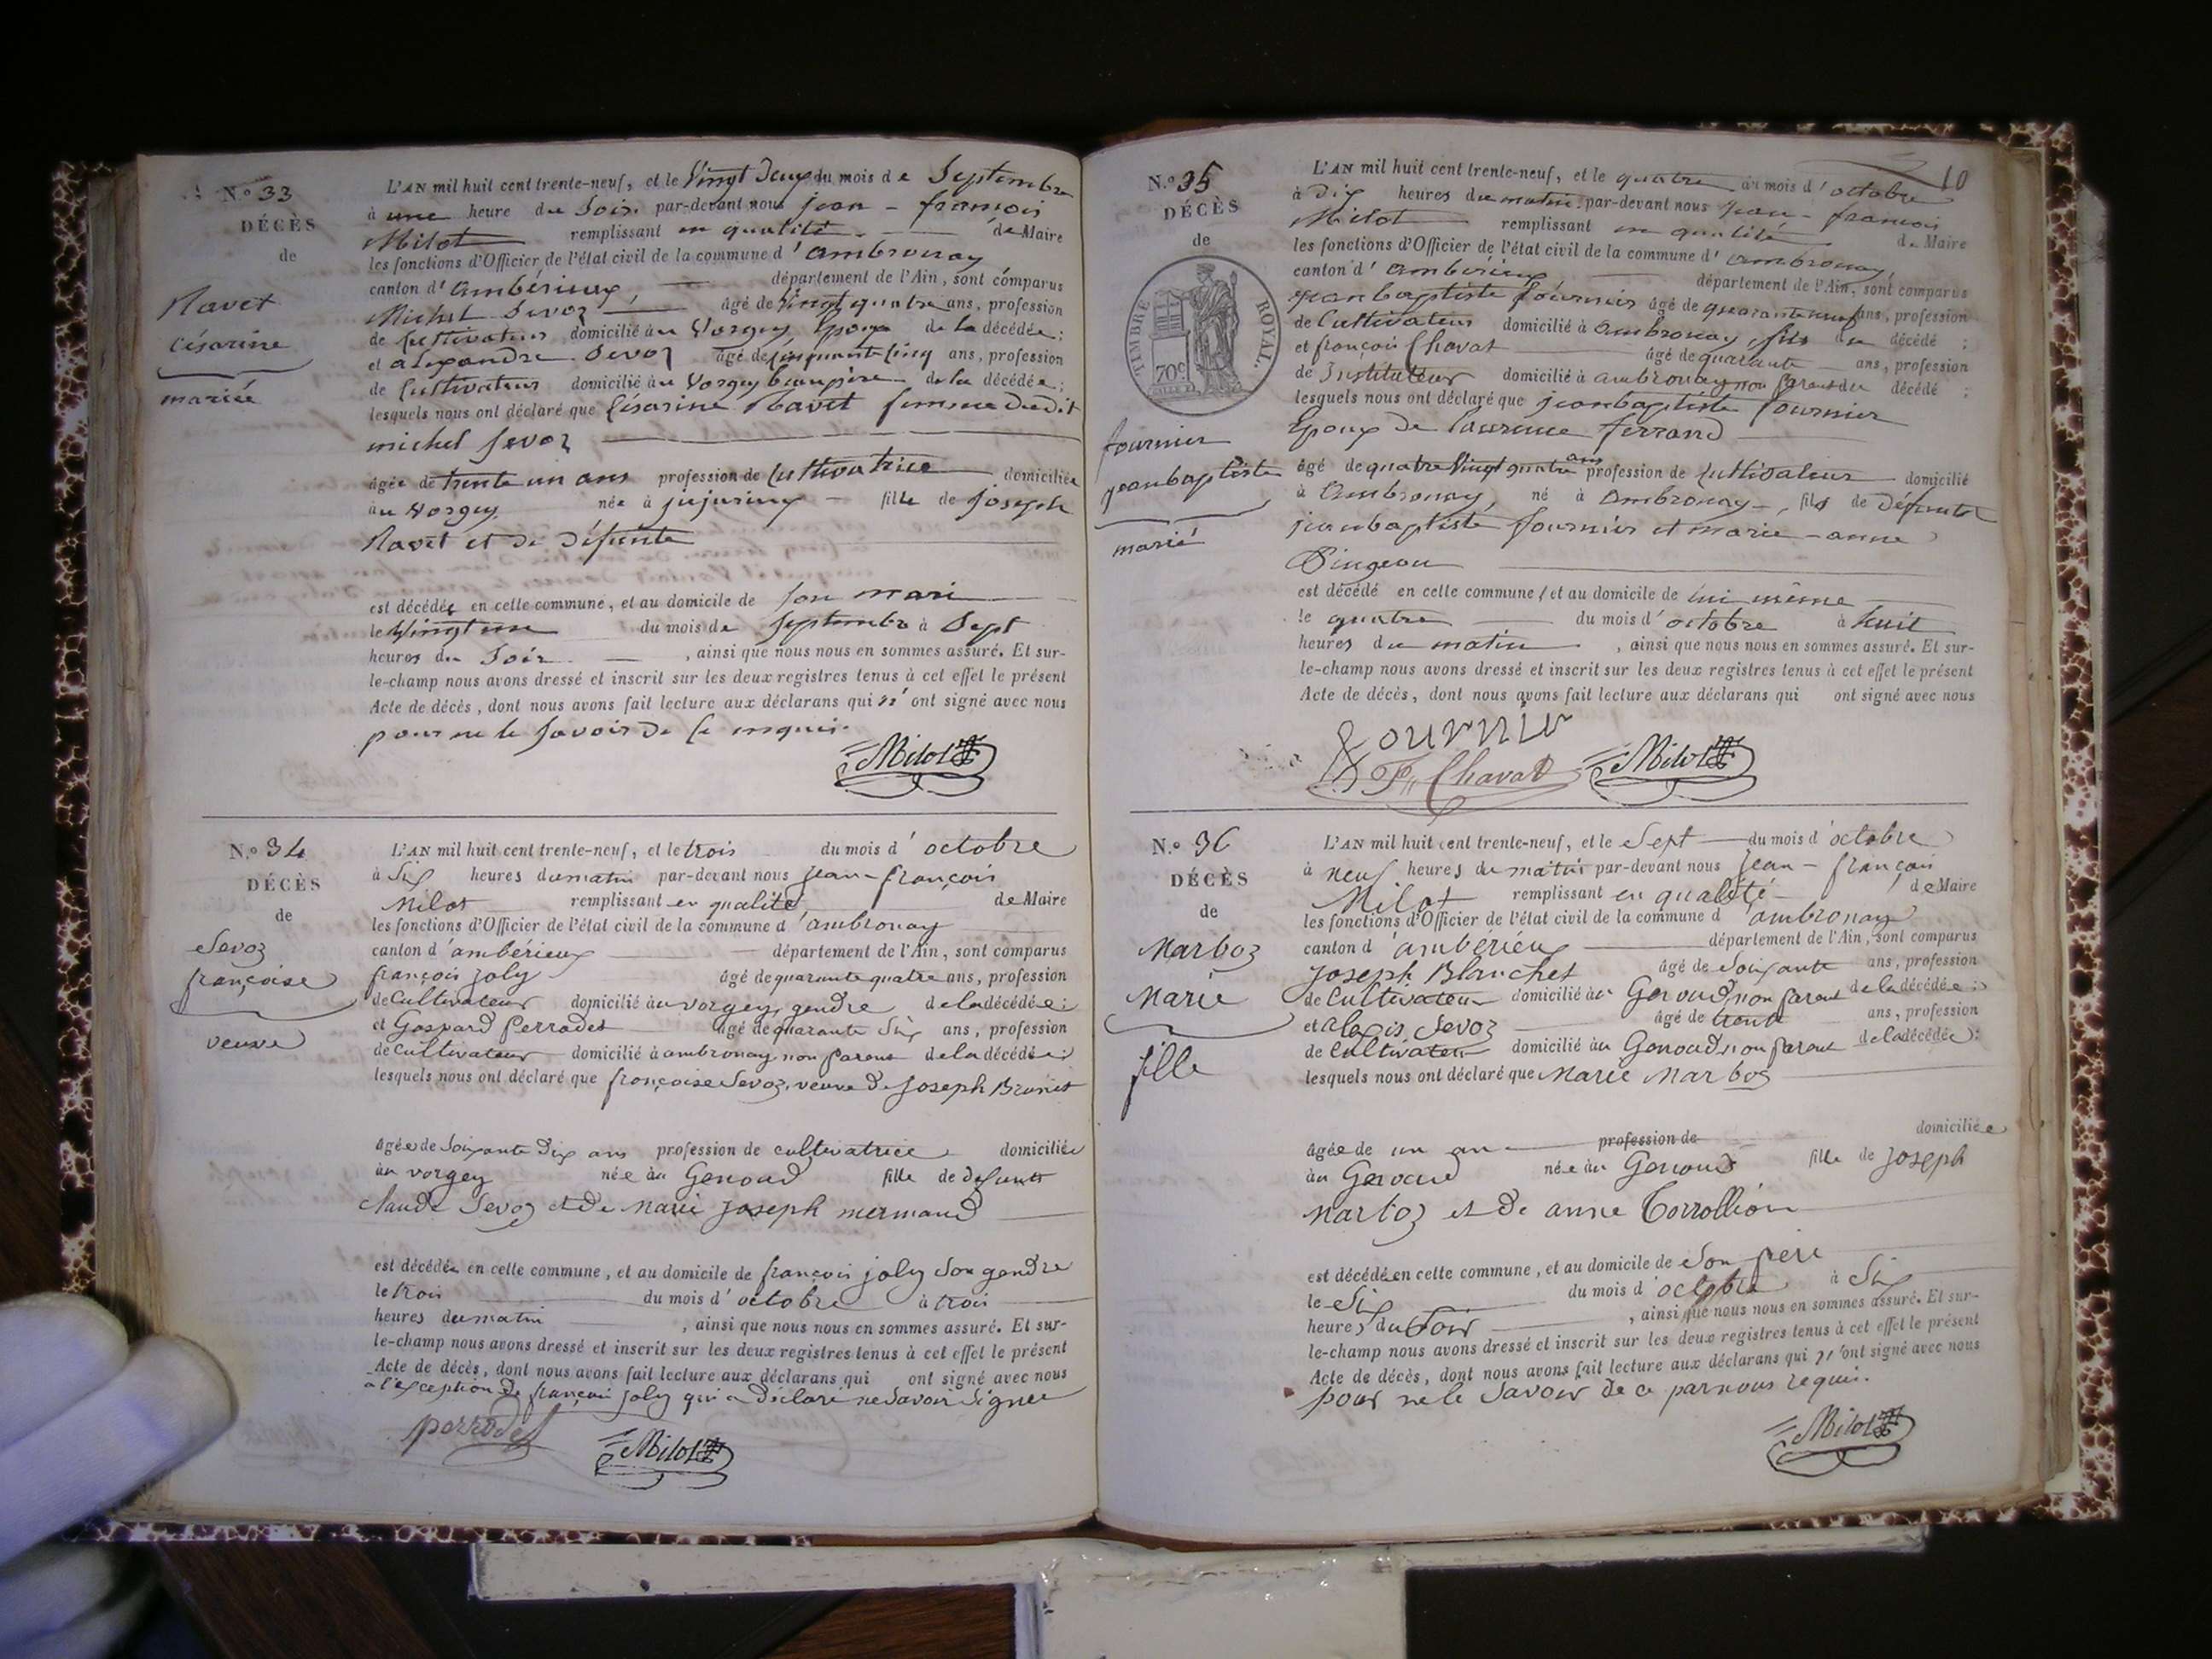 N.o 33
DÉCÈS
de
Ravet
Césarine
mariée
L'AN mil huit cent trente-neuf, et le Vingt deux du mois de Septembre
à une heure du Soir par-devant nous jean-françois
Milot remplissant en qualité de Maire
les fonctions d'Officier de l'état civil de la commune d'ambronay
canton d'ambérieux, département de l'Ain, sont comparus
Michel Sevoz âgé de Vingt quatre ans, profession
de Cultivateur domicilié au Vorgey Epoux de la décédée;
et alexandre Sevoz âgé de Cinquante Cinq ans, profession
de Cultivateur domicilié au Vorgey beaupère de la décédée;
lesquels nous ont déclaré que Césarine Ravet femme dudit
michel Sevoz
âgée de trente un ans profession de Cultivatrice domiciliée
au Vorgey née à jujurieux fille de joseph
Ravet et de défunte
est décédée en cette commune, et au domicile de Son mari
le Vingt un du mois de Septembre à Sept
heures du Soir, ainsi que nous nous en sommes assuré. Et sur-
le-champ nous avons dressé et inscrit sur les deux registres tenus à cet effet le présent
Acte de décès, dont nous avons fait lecture aux déclarans qui n'ont signé avec nous
pour ne le Savoir de ce enquis.
Milot
N.o 34
DÉCÈS
de
Sevoz
françoise
veuve
L'AN mil huit cent trente-neuf, et le trois du mois d'octobre
à Six heures du matin par-devant nous jean-françois
Milot remplissant en qualité de Maire
les fonctions d'Officier de l'état civil de la commune d'ambronay
canton d'ambérieux département de l'Ain, sont comparus
françois joly âgé de quarante quatre ans, profession
de Cultivateur domicilié au vorgey, gendre de la décédée;
et Gaspard Perrodet âgé de quarante Six ans, profession
de cultivateur domicilié à ambronay non parent de la décédée;
lesquels nous ont déclaré que françoise Sevoz, veuve de Joseph Brunet
âgée de Soixante Dix ans profession de cultivatrice domiciliée
au vorgey née au Genoud fille de defunts
claude Sevoz et de Marie Joseph mermand
est décédée en cette commune, et au domicile de françois joly Son gendre
le trois du mois d'octobre à trois
heures du matin, ainsi que nous nous en sommes assuré. Et sur-
le-champ nous avons dressé et inscrit sur les deux registres tenus à cet effet le présent
Acte de décès, dont nous avons fait lecture aux déclarans qui ont signé avec nous
a l'exception de françois joly qui a Déclaré ne Savoir Signer
perrodet Milot
10
N.o 35
DÉCÈS
de
TIMBRE ROYAL.
70c
fournier
jeanbaptiste
marié
L'AN mil huit cent trente-neuf, et le quatre du mois d'octobre
à Dix heures du matin par-devant nous jean-francois
Milot remplissant en qualité de Maire
les fonctions d'Officier de l'état civil de la commune d'ambronay,
canton d'ambérieux, département de l'Ain, sont comparus
jeanbaptiste fournier âgé de quarante neuf ans, profession
de Cultivateur domicilié à ambronay, fils du décédé;
et françois Chavat âgé de quarante ans, profession
de Instituteur domicilié à ambronay non parent du décédé;
lesquels nous ont déclaré que jeanbaptiste fournier
Epoux de laurence ferrand
âgé de quatre Vingt quatre ans profession de Cultivateur domicilié
à Ambronay, né à Ambronay, fils de Défunts
jeanbaptiste fournier et marie-anne
Pingeon
est décédé en cette commune, et au domicile de lui même
le quatre du mois d'octobre à huit
heures du matin, ainsi que nous nous en sommes assuré. Et sur-
le-champ nous avons dressé et inscrit sur les deux registres tenus à cet effet le présent
Acte de décès, dont nous avons fait lecture aux déclarans qui ont signé avec nous
fournier
F. Chavat Milot
N.o 36
DÉCÈS
de
Marboz
Marie
fille
L'AN mil huit cent trente-neuf, et le Sept du mois d'octobre
à neuf heures du matin par-devant nous Jean-françois
Milot remplissant en qualité de Maire
les fonctions d'Officier de l'état civil de la commune d'ambronay
canton d'ambérieux département de l'Ain, sont comparus
Joseph Blanchet âgé de Soixante ans, profession
de Cultivateur domicilié au Genoud, non parent de la décédée;
et alexis Sevoz âgé de trente ans, profession
de Cultivateur domicilié au Genoud, non parent de la décédée;
lesquels nous ont déclaré que Marie Marboz
âgée de un an profession de domiciliée
au Genoud née au Genoud fille de Joseph
Marboz et de anne Corrollion
est décédée en cette commune, et au domicile de Son père
le Six du mois d'octobre à Six
heures du Soir, ainsi que nous nous en sommes assuré. Et sur-
le-champ nous avons dressé et inscrit sur les deux registres tenus à cet effet le présent
Acte de décès, dont nous avons fait lecture aux déclarans qui n'ont signé avec nous
pour ne le Savoir de ce par nous requis.
Milot